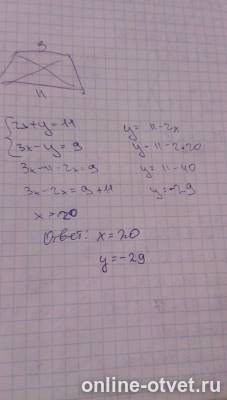 3
11
2x+y=11
3x-y=9
3x-11-2x=9
3x-2x=9+11
x=20
y=11-2x
y=11-2*20
y=11-40
y=-29
Ответ: x=20
y=-29
online-otvet.ru